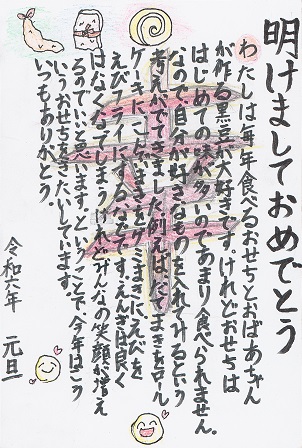 明けましておめでとう
わたしは毎年食べるおせちとおばあちゃん
が作る黒豆が大好きです。けれどおせちは
はじめての味が多いのであまり食べられません。
なので、自分が好きなものを入れてみるという
考えがでてきました。例えば、だてまきをロール
ケーキに、こぶまきをのりまきに、えびを
えびフライにするなどです。えんぎは良く
はなくなってしまうけれどみんなの笑顔が増え
るのでいいと思います。ということで、今年はこう
いうおせちをきたいしています。
いつもありがとう。
令和六年 元旦